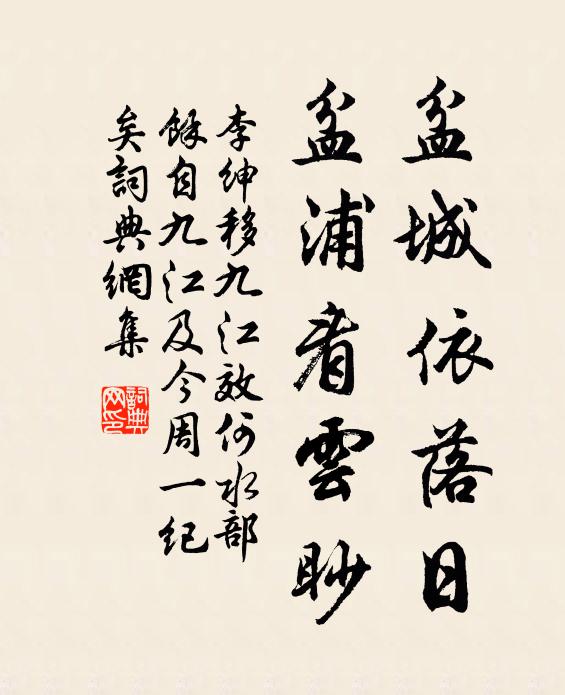 盆城依落日
盆浦看雲眇
李紳移九江效何水部
餘自九江及今周一紀
矣詞典網集
詞典網印